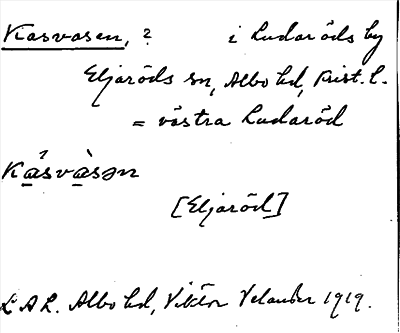 Kasvasen, ? i Ludaröds by
Eljaröds sn, Albo hd, Krist. l.
= västra Ludaröd
Ka̲´sva̲`sən
[Eljaröd]
L.A.L. Albo hd, Viktor Velander 1919.